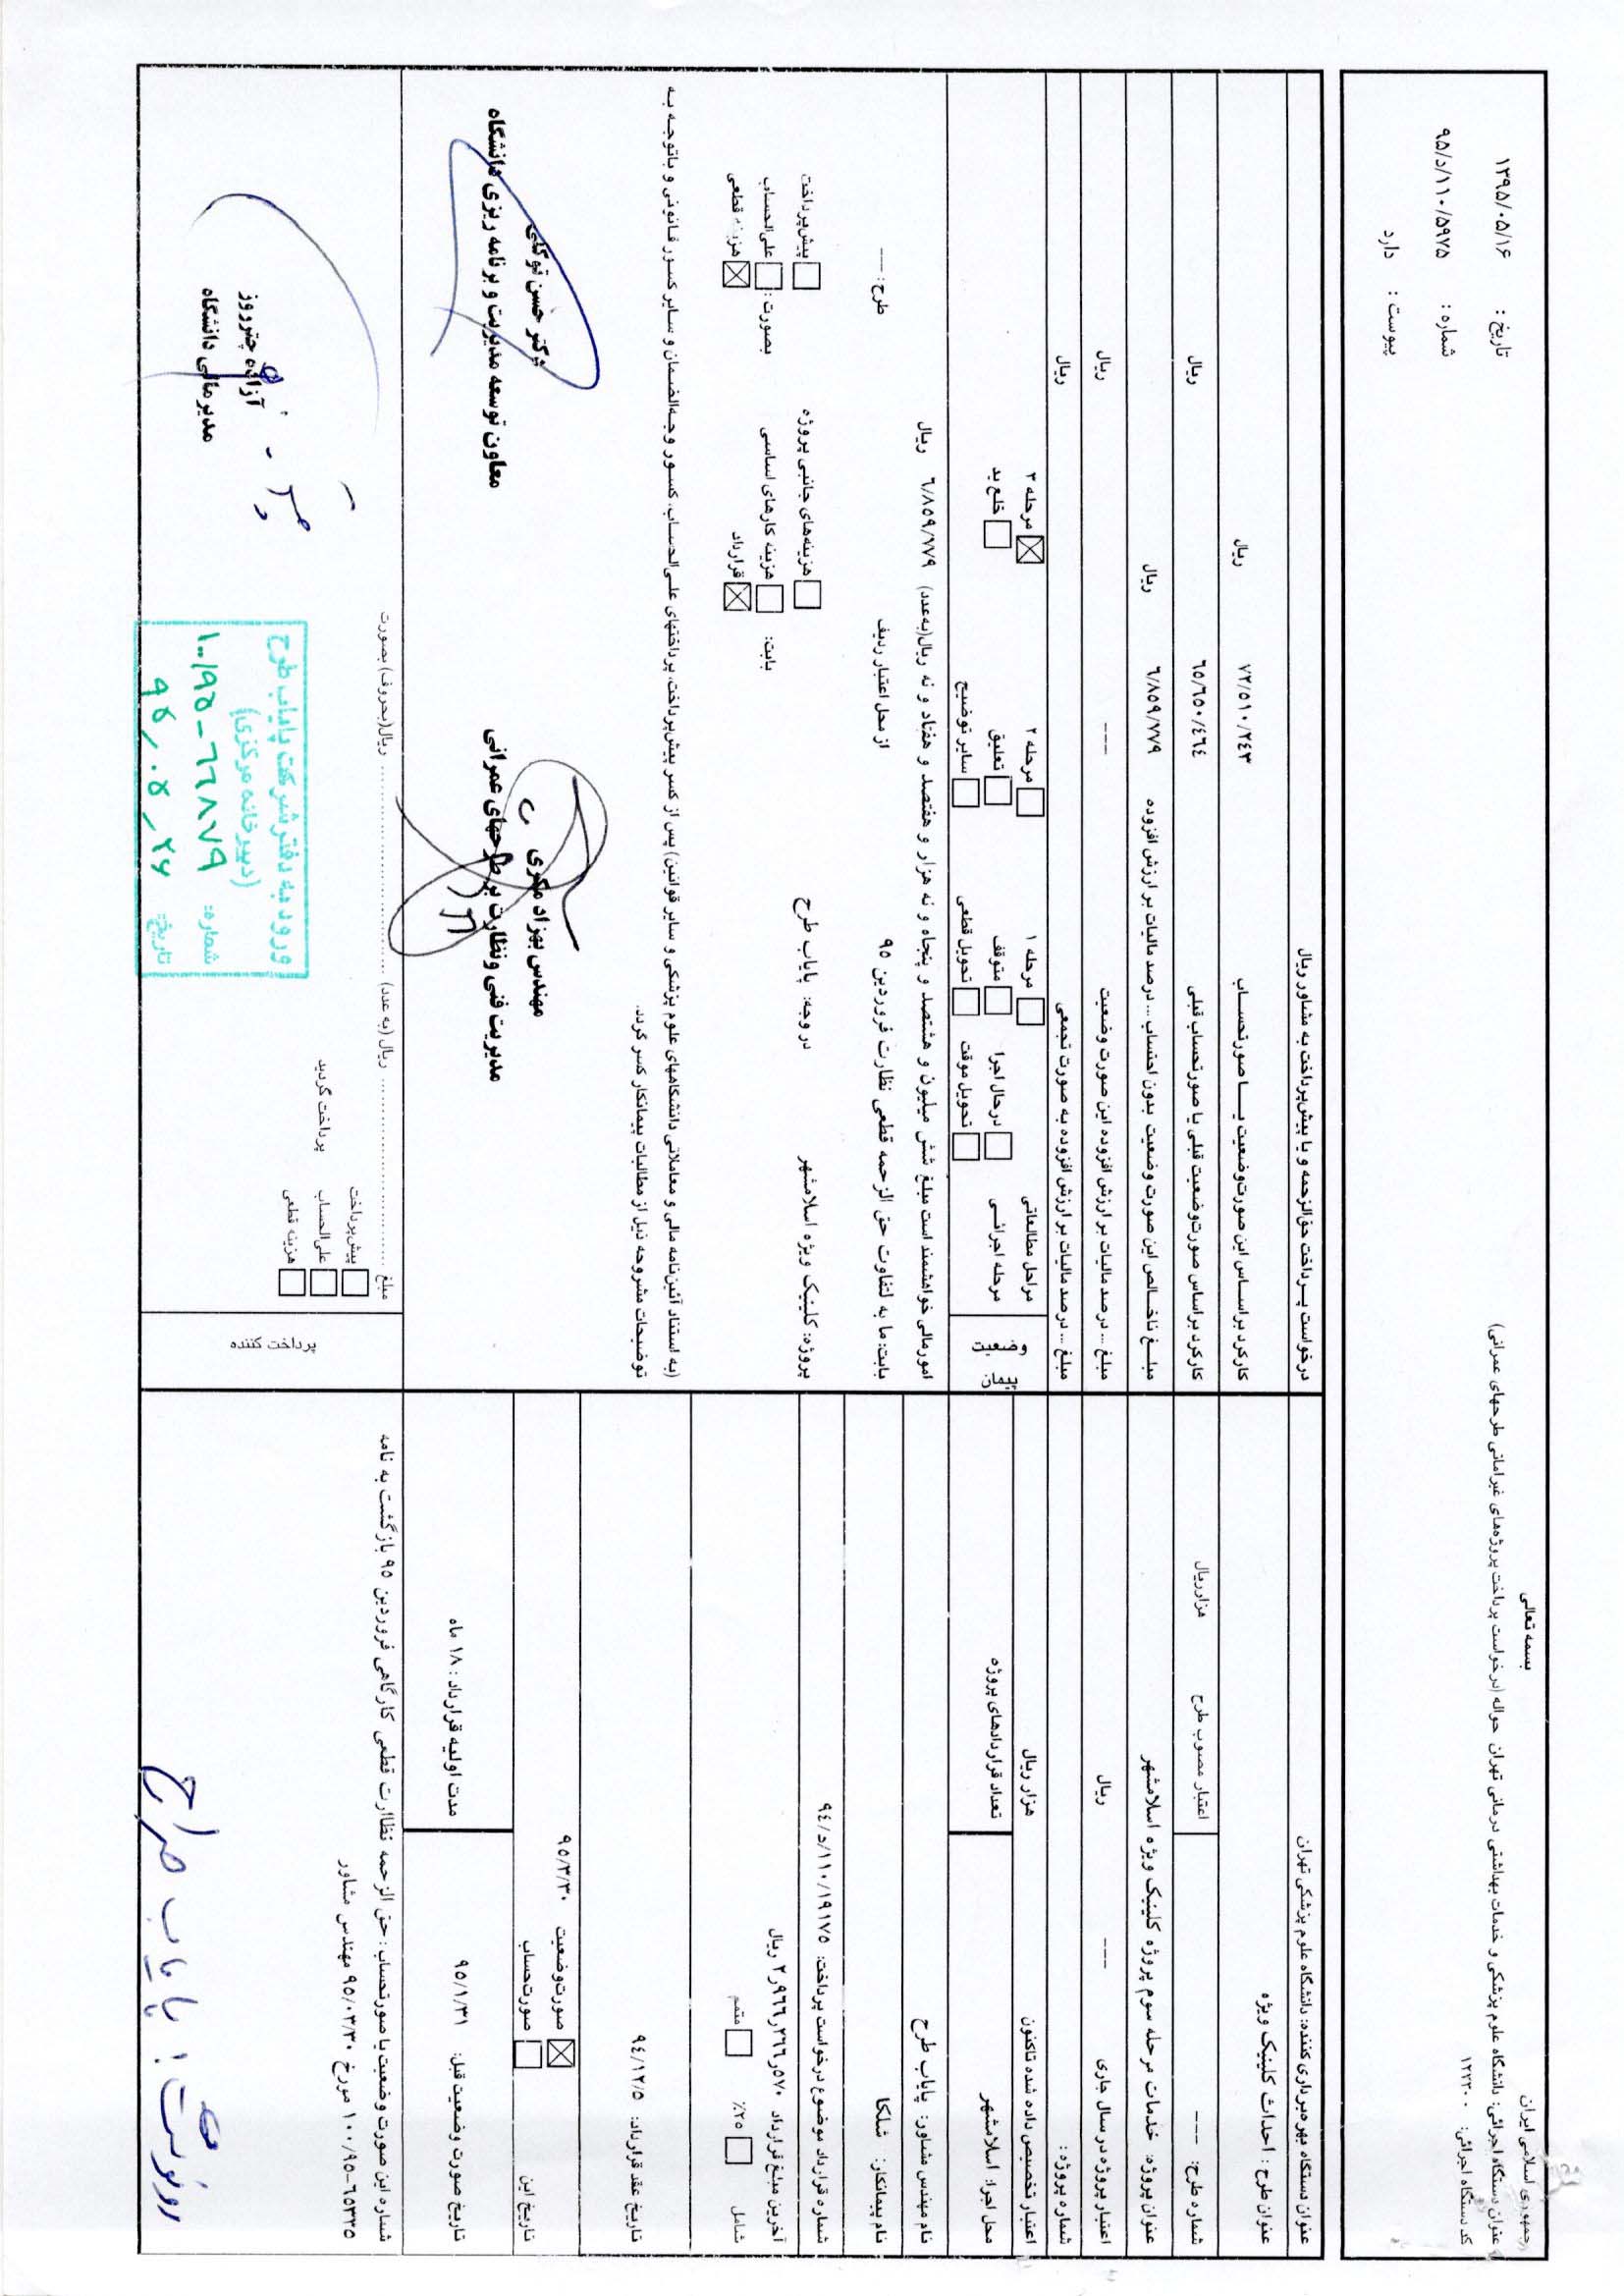 بسمه تعالی
جمهوری اسلامی ایران
عنوان دستگاه اجرائی: دانشگاه علوم پزشکی و خدمات بهداشتی درمانی تهران حواله (درخواست پرداخت پروژه‌های غیرامانی طرحهای عمرانی)
کد دستگاه اجرائی: ۱۲۳۳۰۰
تاریخ : ۱۳۹۵/۰۵/۱۶
شماره : ۹۵/د/۱۱۰/۵۹۷۵
پیوست : دارد
عنوان دستگاه بهره‌برداری کننده: دانشگاه علوم پزشکی تهران
عنوان طرح : احداث کلینیک ویژه
شماره طرح: ---- اعتبار مصوب طرح هزارریال
عنوان پروژه: خدمات مرحله سوم پروژه کلینیک ویژه اسلامشهر
اعتبار پروژه در سال جاری --- ریال
شماره پروژه :
اعتبار تخصیص داده شده تاکنون هزار ریال
محل اجرا: اسلامشهر تعداد قراردادهای پروژه
نام مهندس مشاور: پایاب طرح
نام پیمانکار: شلکا
شماره قرارداد موضوع درخواست پرداخت: ۹٤/د/۱۱۰/۱۹۱۷۵
آخرین مبلغ قرارداد ۲٫۹۶۶٫۲۶۶٫۵۷۰ ریال
شامل ۲۵٪ متمم
تاریخ عقد قرارداد: ۹٤/۱۲/۵
تاریخ این صورت‌وضعیت ۹۵/۳/۳۰
صورتحساب
تاریخ صورت وضعیت قبل: ۹۵/۱/۳۱ مدت اولیه قرارداد : ۱۸ ماه
شماره این صورت وضعیت یا صورتحساب : حق الزحمه نظاارت قطعی کارگاهی فروردین ۹۵ بازگشت به نامه
۱۰۰/۹۵-۶۵۳۳۵ مورخ ۹۵/۰۳/۳۰ مهندس مشاور
رونوشت : پایاب طرح
درخواست پرداخت حق‌الزحمه و یا پیش‌پرداخت به مشاور ریال
کارکرد براساس این صورت‌وضعیت یا صورتحساب ۷۲/۵۱۰/۲٤۳ ریال
کارکرد براساس صورت‌وضعیت قبلی یا صورتحساب قبلی ۶۵/۶۵۰/٤۶٤ ریال
مبلغ ناخالص این صورت وضعیت بدون احتساب ... درصد مالیات بر ارزش افزوده ۶/۸۵۹/۷۷۹ ریال
مبلغ ... درصد مالیات بر ارزش افزوده این صورت وضعیت --- ریال
مبلغ ... درصد مالیات بر ارزش افزوده به صورت تجمعی ریال
وضعیت پیمان:
مراحل مطالعاتی مرحله ۱ مرحله ۲ مرحله ۳
مرحله اجرائی درحال اجرا متوقف تعلیق خلع ید
تحویل موقت تحویل قطعی سایر توضیح
امورمالی خواهشمند است مبلغ شش میلیون و هشتصد و پنجاه و نه هزار و هفتصد و هفتاد و نه ریال(به‌عدد) ۶/۸۵۹/۷۷۹ ریال
بابت: ما به لتفاوت حق الزحمه قطعی نظارت فروردین ۹۵ از محل اعتبار ردیف طرح: ----
پروژه: کلینیک ویژه اسلامشهر در وجه: پایاب طرح
هزینه‌های جانبی پروژه پیش‌پرداخت
بابت: هزینه کارهای اساسی بصورت: علی‌الحساب
قرارداد هزینه قطعی
(به استناد آئین‌نامه مالی و معاملاتی دانشگاههای علوم پزشکی و سایر قوانین) پس از کسر پیش‌پرداخت، پرداختهای علی‌الحساب، کسور وجه‌الضمان و سایر کسور قانونی و باتوجه به
توضیحات مشروحه ذیل از مطالبات پیمانکار کسر گردد.
مهندس بهزاد مکری
مدیریت فنی ونظارت بر طرحهای عمرانی
دکتر حسن توکلی
معاون توسعه مدیریت و برنامه ریزی دانشگاه
پرداخت کننده
مبلغ ........ ریال (به عدد) ........ ریال(بحروف) بصورت
پیش‌پرداخت
علی‌الحساب پرداخت گردید
هزینه قطعی
ورود به دفتر شرکت پایاب طرح
(دبیرخانه مرکزی)
شماره: ۱۰۰/۹۵-۶۶۸۷۹
تاریخ: ۹۵/۰۵/۲۶
آزاده چترروز
مدیر مالی دانشگاه